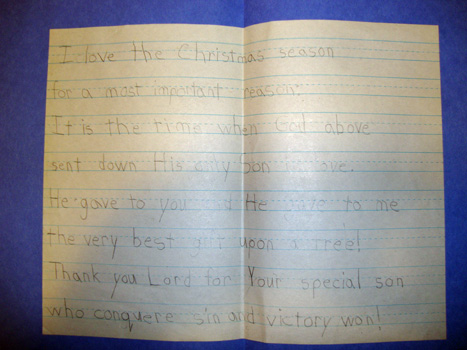 I love the Christmas season
for a most important reason.
It is the time when God above
sent down His only Son in love.
He gave to you and He gave to me
the very best gift upon a tree!
Thank you Lord for Your special son
who conquere sin and victory won!